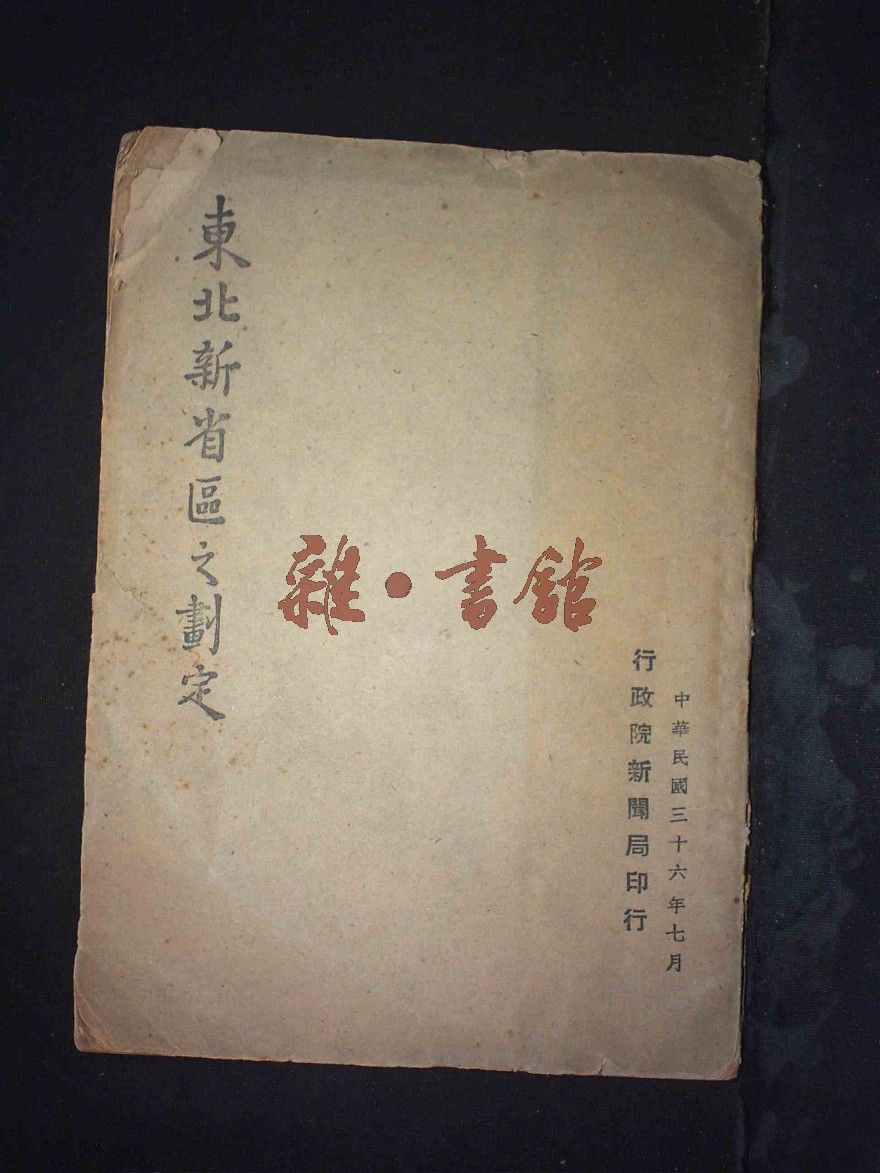 中華民國三十六年七月
行政院新聞局印行
東北新省區之劃定
雜·書館